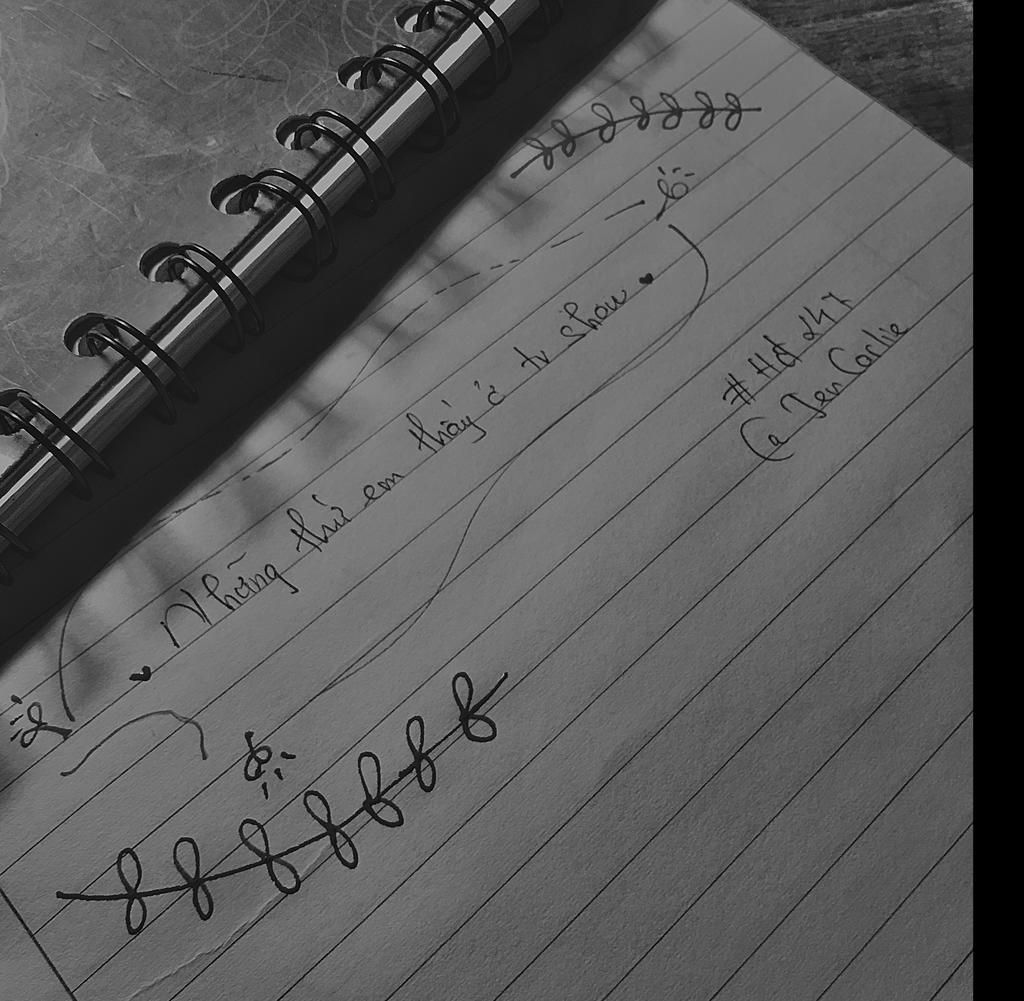 Những thứ em thấy ở tv show
#Hd 247
Ca Jen Carlie